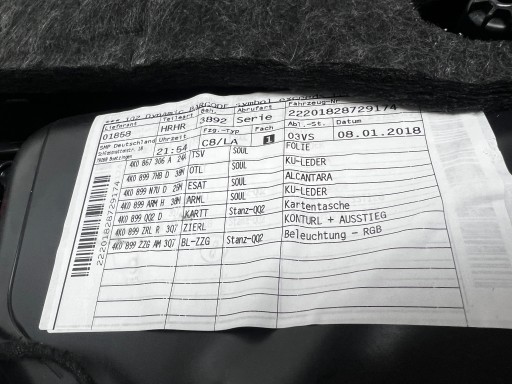 Lieferant Teileart Beh. Abrufart Fahrzeug-Nr
01858 HRHR 3892 Serie 22201828729174
SMP Deutschland Uhrzeit Fzg.-Typ Fach Abl.-St. Datum
21:54 C8/LA 1 03VS 08.01.2018
4K0 867 306 A 24A TSV SOUL FOLIE
4K0 899 7HB D 30M OTL SOUL KU-LEDER
4K0 899 N7U D 25M ESAT SOUL ALCANTARA
4K0 899 ARM H 30M ARML SOUL KU-LEDER
4K0 899 QQ2 D KARTT Stanz-QQ2 Kartentasche
4K0 899 ZRL R 3Q7 ZIERL KONTURL + AUSSTIEG
4K0 899 ZZG AM 3Q7 BL-ZZG Stanz-QQ2 Beleuchtung - RGB
22201828729174